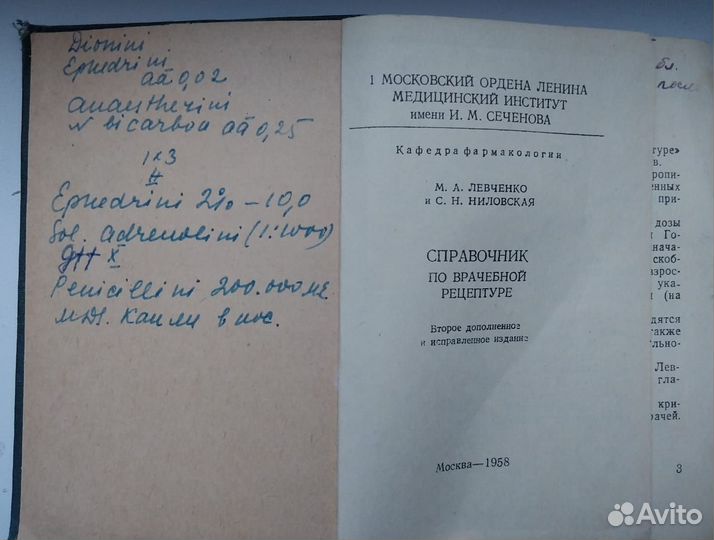 Dionini
Ephedrini
āā 0,02
Anaestherini
N bicarbon āā 0,25
1×3
#
Ephedrini 2% – 10,0
Sol. adrenolini (1:1000)
gtt X
Penicillini 200.000 ме.
МДS. Капли в нос.
1 МОСКОВСКИЙ ОРДЕНА ЛЕНИНА
МЕДИЦИНСКИЙ ИНСТИТУТ
имени И. М. СЕЧЕНОВА
Кафедра фармакологии
М. А. ЛЕВЧЕНКО
и С. Н. НИЛОВСКАЯ
СПРАВОЧНИК
ПО ВРАЧЕБНОЙ
РЕЦЕПТУРЕ
Второе дополненное
и исправленное издание
Москва—1958
бл.
после
туре»
в.
ропи-
енных
при-
дозы
и Го-
нача-
скоб-
зрос-
ука-
и (на
дятся
также
льно-
Лев-
гла-
кри-
рачей.
3
Avito